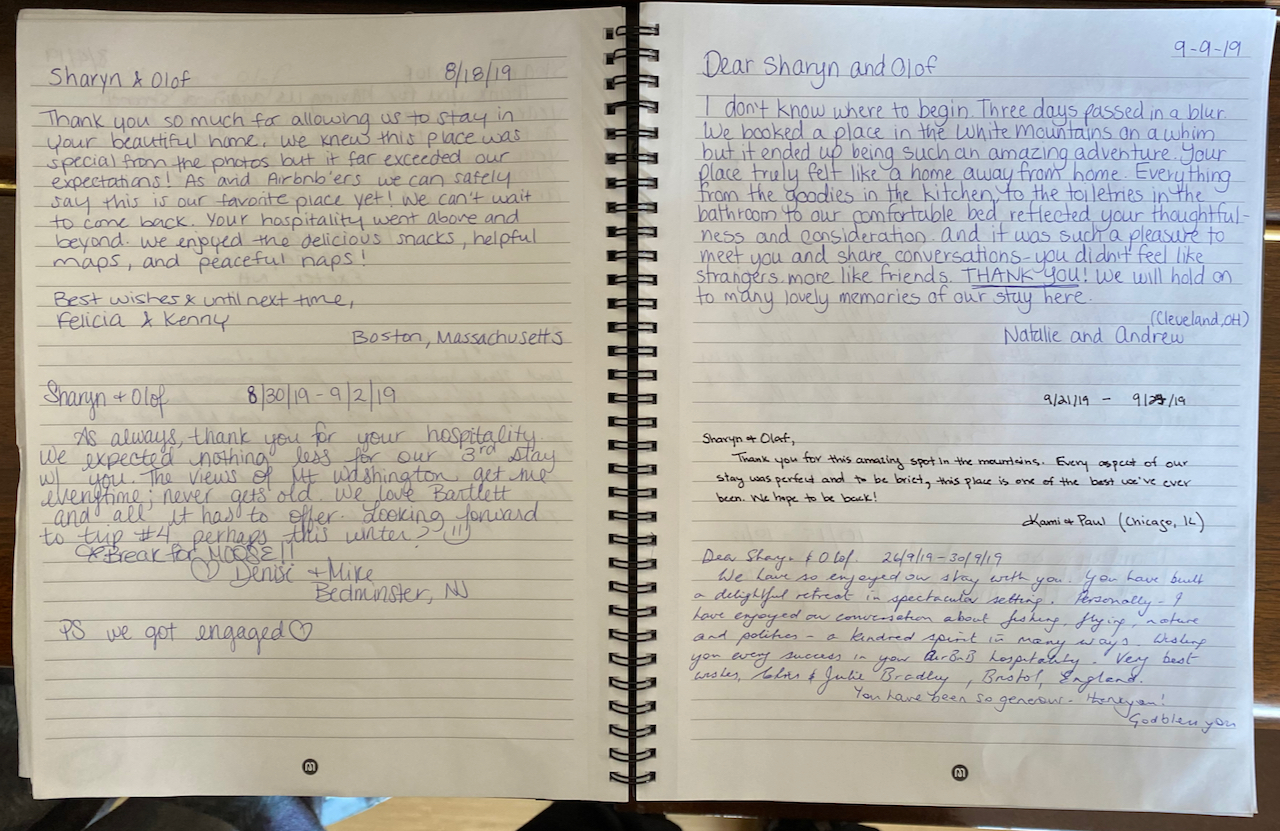 Sharyn & Olof 8/18/19
Thank you so much for allowing us to stay in
your beautiful home. We knew this place was
special from the photos but it far exceeded our
expectations! As avid Airbnb'ers we can safely
say this is our favorite place yet! We can't wait
to come back. Your hospitality went above and
beyond. We enjoyed the delicious snacks, helpful
maps, and peaceful naps!
Best wishes & until next time,
Felicia & Kenny
Boston, Massachusetts
Sharyn + Olof 8/30/19 - 9/2/19
As always, thank you for your hospitality
We expected nothing less for our 3rd stay
w/ you. The views of Mt Washington get me
everytime; never gets old. We love Bartlett
and all it has to offer. Looking forward
to trip #4 perhaps this winter? :))
*Break for MOOSE!!
♡ Denise + Mike
Bedminster, NJ
PS we got engaged ♡
9-9-19
Dear Sharyn and Olof
I don't know where to begin. Three days passed in a blur.
We booked a place in the White Mountains on a whim
but it ended up being such an amazing adventure. Your
place truly felt like a home away from home. Everything
from the goodies in the kitchen, to the toiletries in the
bathroom to our comfortable bed reflected your thoughtful-
ness and consideration. And it was such a pleasure to
meet you and share conversations - you didn't feel like
strangers, more like friends. THANK YOU! We will hold on
to many lovely memories of our stay here.
(Cleveland, OH)
Natalie and Andrew
9/21/19 - 9/ /19
Sharyn + Olaf,
Thank you for this amazing spot in the mountains. Every aspect of our
stay was perfect and to be brief, this place is one of the best we've ever
been. We hope to be back!
Kami + Paul (Chicago, IL)
Dear Sharyn & Olof. 26/9/19 - 30/9/19
We have so enjoyed our stay with you. You have built
a delightful retreat in spectacular setting. Personally - I
have enjoyed our conversation about fishing, flying, nature
and politics - a kindred spirit in many ways. Wishing
you every success in your AirBnB hospitality. Very best
wishes, & Julie Bradley, Bristol, England.
You have been so generous - thank you!
God bless you